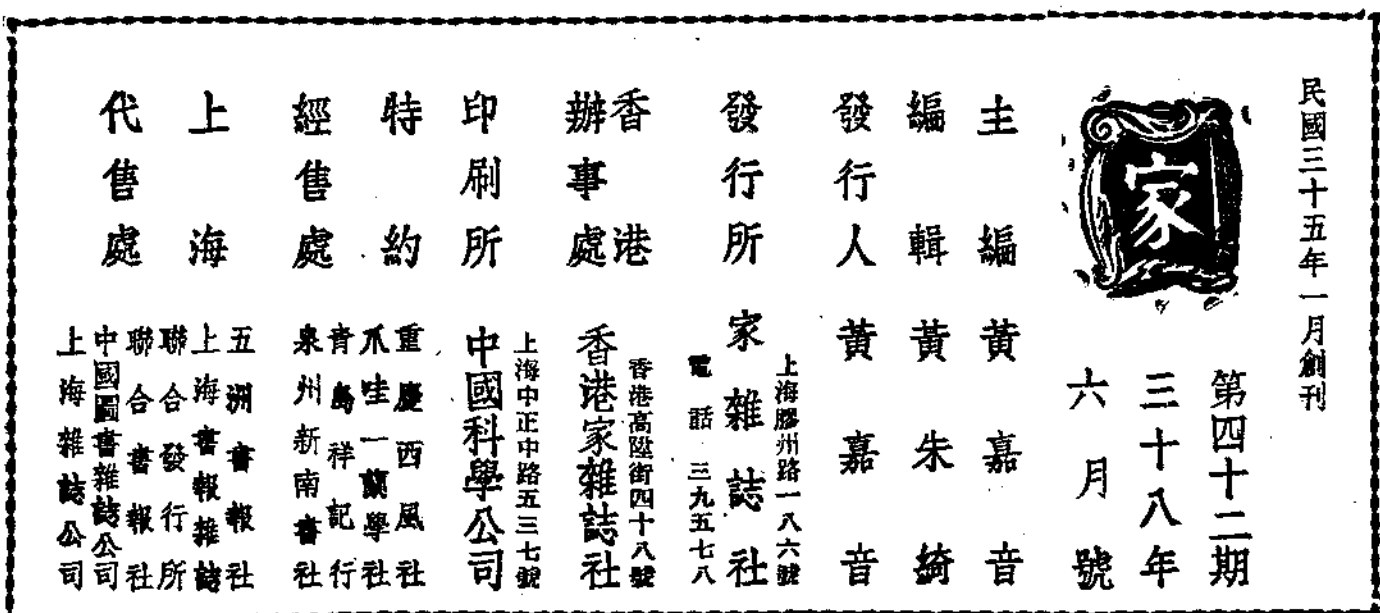 民國三十五年一月創刊
家
第四十二期
三十八年
六月號
主編 黃嘉音
編輯 黃朱綺
發行人 黃嘉音
發行所 家雜誌社
上海膠州路一八六號
電話 三九五七八
香港辦事處 香港家雜誌社
香港高陞街四十八號
印刷所 中國科學公司
上海中正中路五三七號
特約經售處
重慶西風社
爪哇一蘭學社
青島祥記行
泉州新南書社
上海代售處
五洲書報社
上海書報雜誌
聯合發行所
聯合書報社
中國圖書雜誌公司
上海雜誌公司